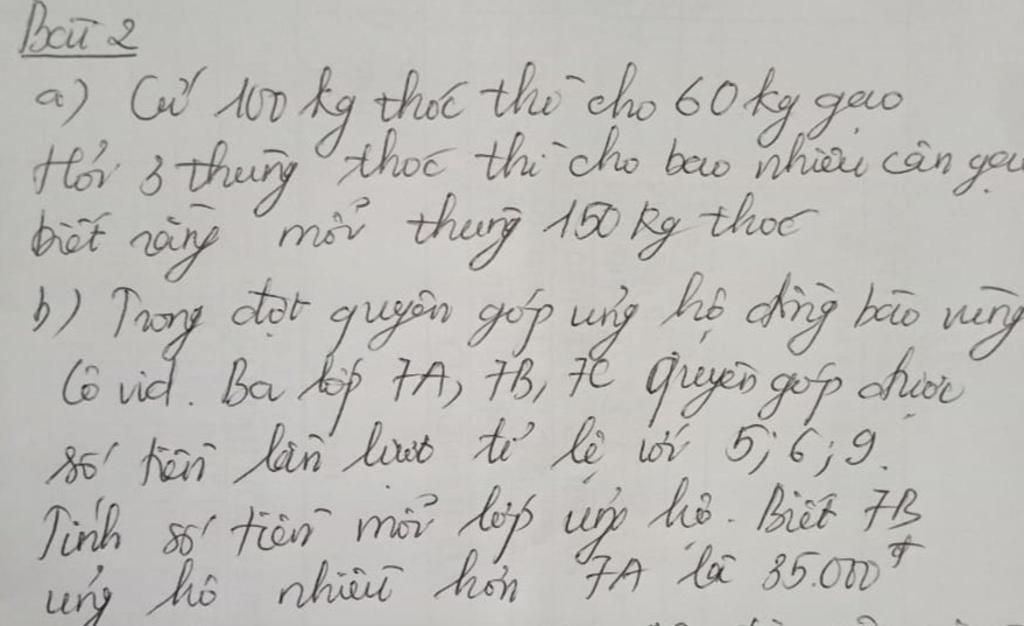 Bài 2
a) Cứ 100 kg thóc thì cho 60 kg gạo
Hỏi 3 thùng thóc thì cho bao nhiêu cân gạ
biết rằng mỗi thùng 150 kg thóc
b) Trong đợt quyên góp ủng hộ đồng bào vùng
Cô vid. Ba lớp 7A, 7B, 7C quyên góp được
số tiền lần lượt tỉ lệ với 5; 6; 9.
Tính số tiền mỗi lớp ủng hộ. Biết 7B
ủng hộ nhiều hơn 7A là 35.000đ